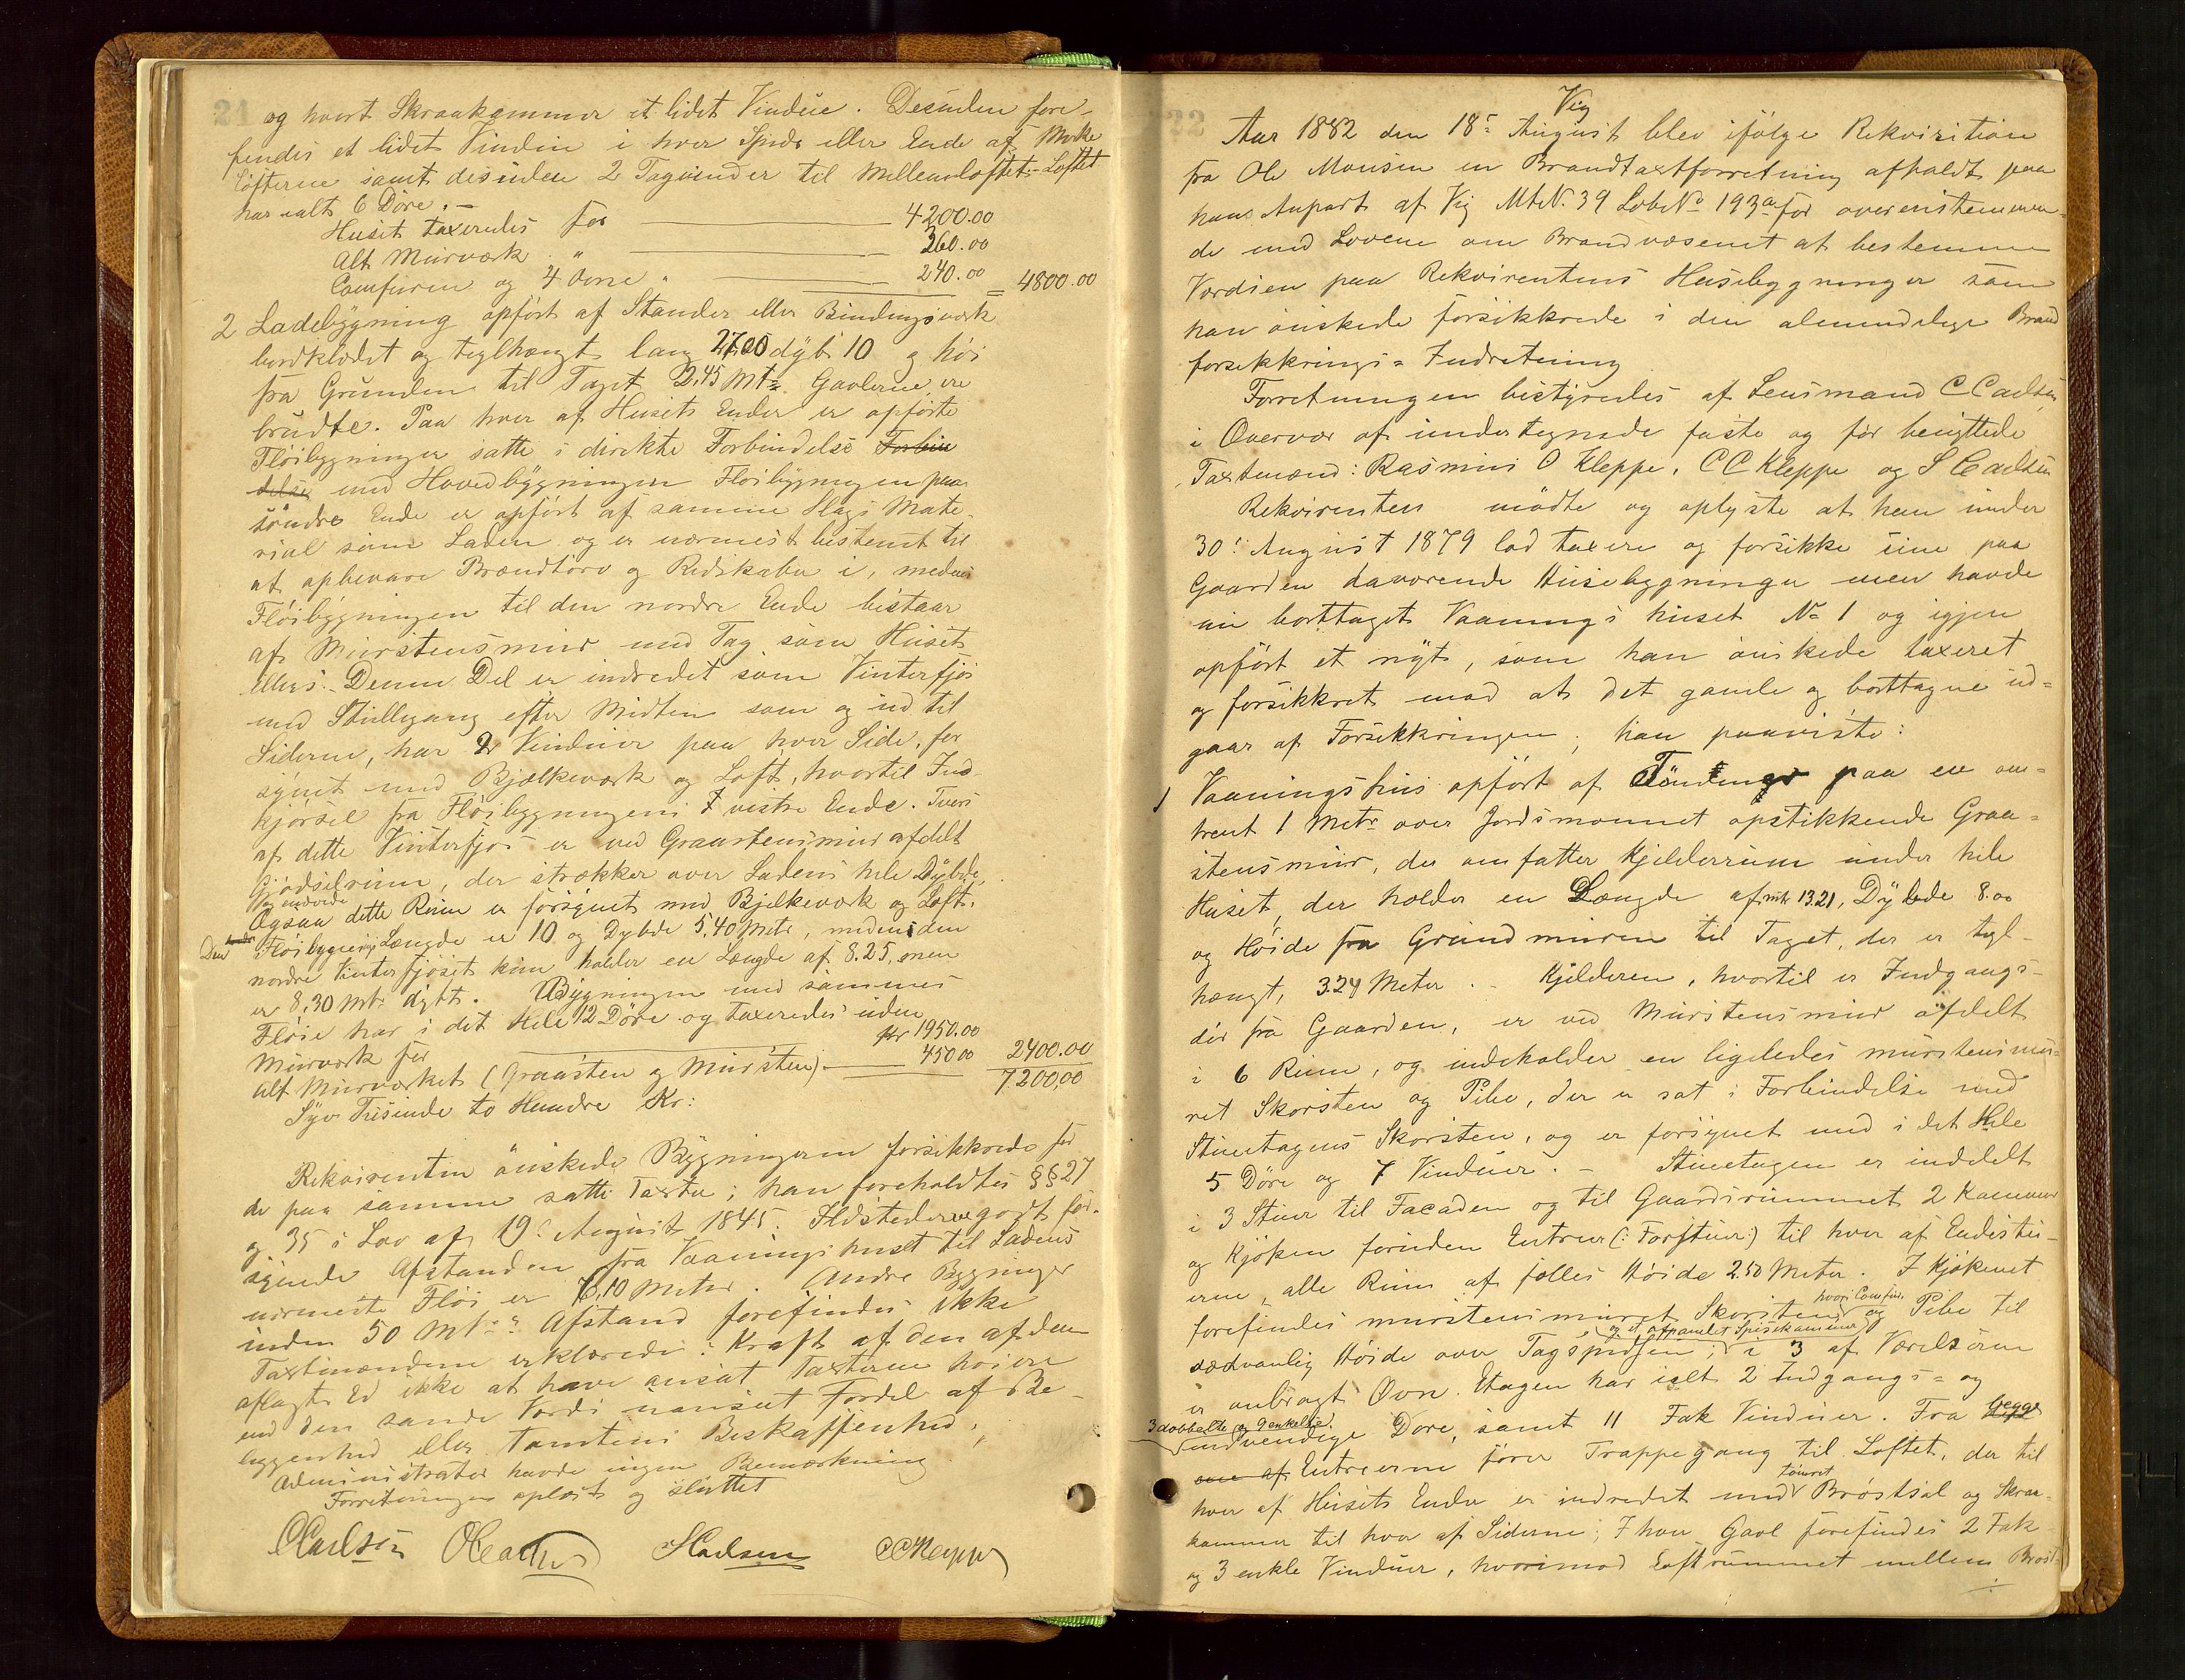 21
og hvert Skraakammer et lidet Vindue. Desuden fore-
findes et lidet Vindue i hver Spids eller Ende af Mørke
lofterne samt desuden 2 Tagvinder til Mellemloftet-Loftet
har ialt 6 Døre.-
Huset taxeredes for 4200.00
Alt Murværk " 360.00
Comfuren og 4 Ovne " 240.00 = 4800.00
2 Ladebygning opført af Stander eller Bindingsværk
bordklædet og teglhængt lang 27.00 dyb 10 og høi
fra Grunden til Taget 2.45 Mtr. Gavlerne ere
brudte. Paa hver af Husets Ender er opførte
Fløibygninger satte i direkte Forbindelse Forbin
delse med Hovedbygningen Fløibygningen paa
søndre Ende er opført af samme Slags Mate-
rial som Laden og er nærmest bestemt til
at opbevare Brændtørv og Redskaber i, medens
Fløibygningen til den nordre Ende bestaar
af Murstensmur med Tag som Husets
ellers. Denne Del er indredet som Vinterfjøs
med Stillegang efter Midten som og ud til
Siderne, har 2 Vinduer paa hver Side, for
synet med Bjælkeværk og Loft, hvortil Ind-
kjørsel fra Fløibygningens vestre Ende. Tvers
af dette Vinterfjøs er ved Graastensmur afdelt
Gjødselrum, der strækker over Ladens hele Dybde,
Ogsaa dette Rum er forsynet med Bjelkeværk og Loft.
Den Fløibygnings Længde er 10 og Dybde 5,40 Metr, medens den
nordre Vinterfjøset kun holder en Længde af 8.25, men
er 8,30 Mtr dybt. Bygningen med sammes
Fløie har i det Hele 12 Døre og taxeredes uden
Murværk for Kr 1950.00
Alt Murværket (Graasten og Mursten) 450.00 2400.00
7200,00
Syv Tusinde to Hundre Kr:
Rekvirenten ønskede Bygningerne forsikkrede for
de paa samme satte Taxter; han foreholdtes §§27
og 35 i Lov af 19. August 1845. Ildstederne godt for-
synede Afstanden fra Vaaningshuset til Ladens
nærmeste Fløi er 7,10 Meter. Andre Bygninger
inden 50 Mtr:s Afstand forefindes ikke
Taxtmændene erklærede i Kraft af den af dem
aflagte Ed ikke at have ansat Taxterne høiere
end den sande Værdi uanseet Fordel af Be-
liggenhed eller Tomtens Beskaffenhed;
Administrator havde ingen Bemærkning
Forretningen oplæst og sluttet
CCarlsen SCarlsen CCKleppe
22
Vig
Aar 1882 den 18de August blev ifølge Rekvisition
fra Ole Monsen en Brandtaxtforretning afholdt paa
hans Anpart af Vig MtrN. 39 LøbeNo 193a for overenstemmen-
de med Lovene om Brandvæsenet at bestemme
Værdien paa Rekvirentens Husebygninger som
han ønskede forsikkrede i den almindelige Brand
forsikkrings-Indretning
Forretningen bestyredes af Lensmand CCarlsen
i Overvær af undertegnede faste og før benyttede
Taxtmænd: Rasmus O Kleppe, CC Kleppe og S Carlsen
Rekvirenten mødte og oplyste at han under
30. August 1879 lod taxere og forsikke sine paa
Gaarden daværende Husebygninger men havde
nu borttaget Vaaningshuset No 1 og igjen
opført et nyt, som han ønskede taxeret
og forsikkret mod at det gamle og borttagne ud-
gaar af Forsikkringen; han paaviste:
1 Vaaningshus opført af Tømmer paa en om-
trent 1 Metr over Jordsmonnet opstikkende Graa-
stensmur, der omfatter Kjelderrum under hele
Huset, der holder en Længde af mtr 13.21, Dybde 8.00
og Høide fra Grundmuren til Taget, der er tegl-
hængt, 3.24 Meter. - Kjelderen, hvortil er Indgangs-
dør fra Gaarden, er ved Murstensmur afdelt
i 6 Rum, og indeholder en ligeledes murstensmu-
ret Skorsten og Pibe, der er sat i Forbindelse med
Stueetagens Skorsten, og er forsynet med i det Hele
5 Døre og 7 Vinduer. - Stueetagen er inddelt
i 3 Stuer til Facaden og til Gaardsrummet 2 Kammer
og Kjøken foruden Entreer (: Forstuer:) til hver af Endestu-
erne, alle Rum af fælles Høide 2.50 Meter. I Kjøkenet
forefindes murstensmuret Skorsten hvori Comfur. og Pibe til
sædvanlig Høide over Tagspidsen; og et afpanelet Spisekammer i 3 af Værelserne
er anbragt Ovn. Etagen har ialt 2 Indgangs- og
3 dobbelte og 9 enkelte indvendige Døre, samt 11 Fak Vinduer. Fra begge
Entreerne fører Trappegang til Loftet, der til
hver af Husets Ender er indredet med tømret Brøstsal og Skraa-
kammer til hver af Siderne; I hver Gavl forefindes 2 Fak
og 3 enkle Vinduer, hvorimod Loftrummet mellem Brøst-